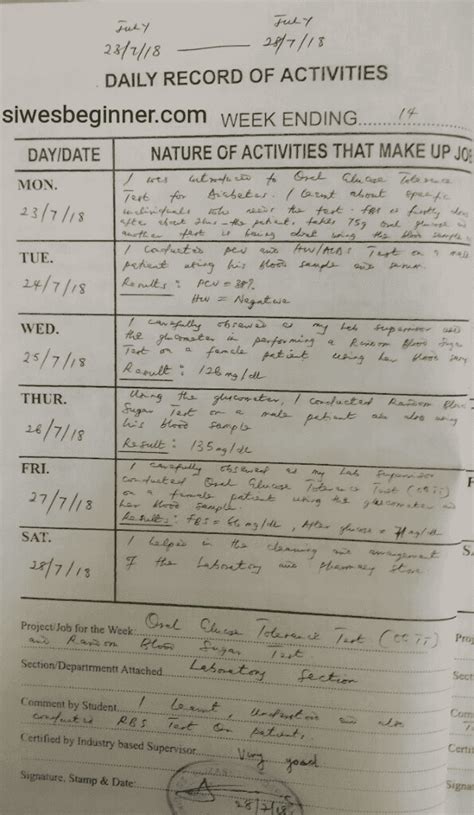 July July
23/7/18 — 28/7/18
DAILY RECORD OF ACTIVITIES
siwesbeginner.com WEEK ENDING 14
DAY/DATE NATURE OF ACTIVITIES THAT MAKE UP JO
MON.
23/7/18
I was introduced to Oral Glucose Tolerance
Test for Diabetes. I learnt about specific
individuals who needs the test. FBS is firstly
after about 2hrs the patient takes 75g oral glucose
another test is being done using the blood sample
TUE.
24/7/18
I conducted PCV and Test on a male
patient using his blood sample and serum.
Results: PCV = 38%
= Negative
WED.
25/7/18
I carefully observed as my Lab Supervisor used
the glucometer in performing a Random Blood Sugar
Test on a female patient using her blood
Result: 126mg/dl
THUR.
26/7/18
Using the glucometer, I conducted Random Blood
Sugar Test on a male patient also using
his blood sample
Result: 135mg/dl
FRI.
27/7/18
I carefully observed as my Lab Supervisor
conducted Oral Glucose Tolerance Test
on a female patient using the glucometer
her blood sample.
Results: FBS = 66mg/dl, After glucose = mg/dl
SAT.
28/7/18
I helped in the cleaning and arrangement
of the Laboratory and Pharmacy Store
Project/Job for the Week Oral Glucose Tolerance Test
and Random Blood Sugar Test
Section/Departmentt Attached Laboratory Section
Comment by Student I learnt, understood and also
conducted RBS Test on patient,
Certified by Industry based Supervisor Very good
Signature, Stamp & Date: 28/7/18